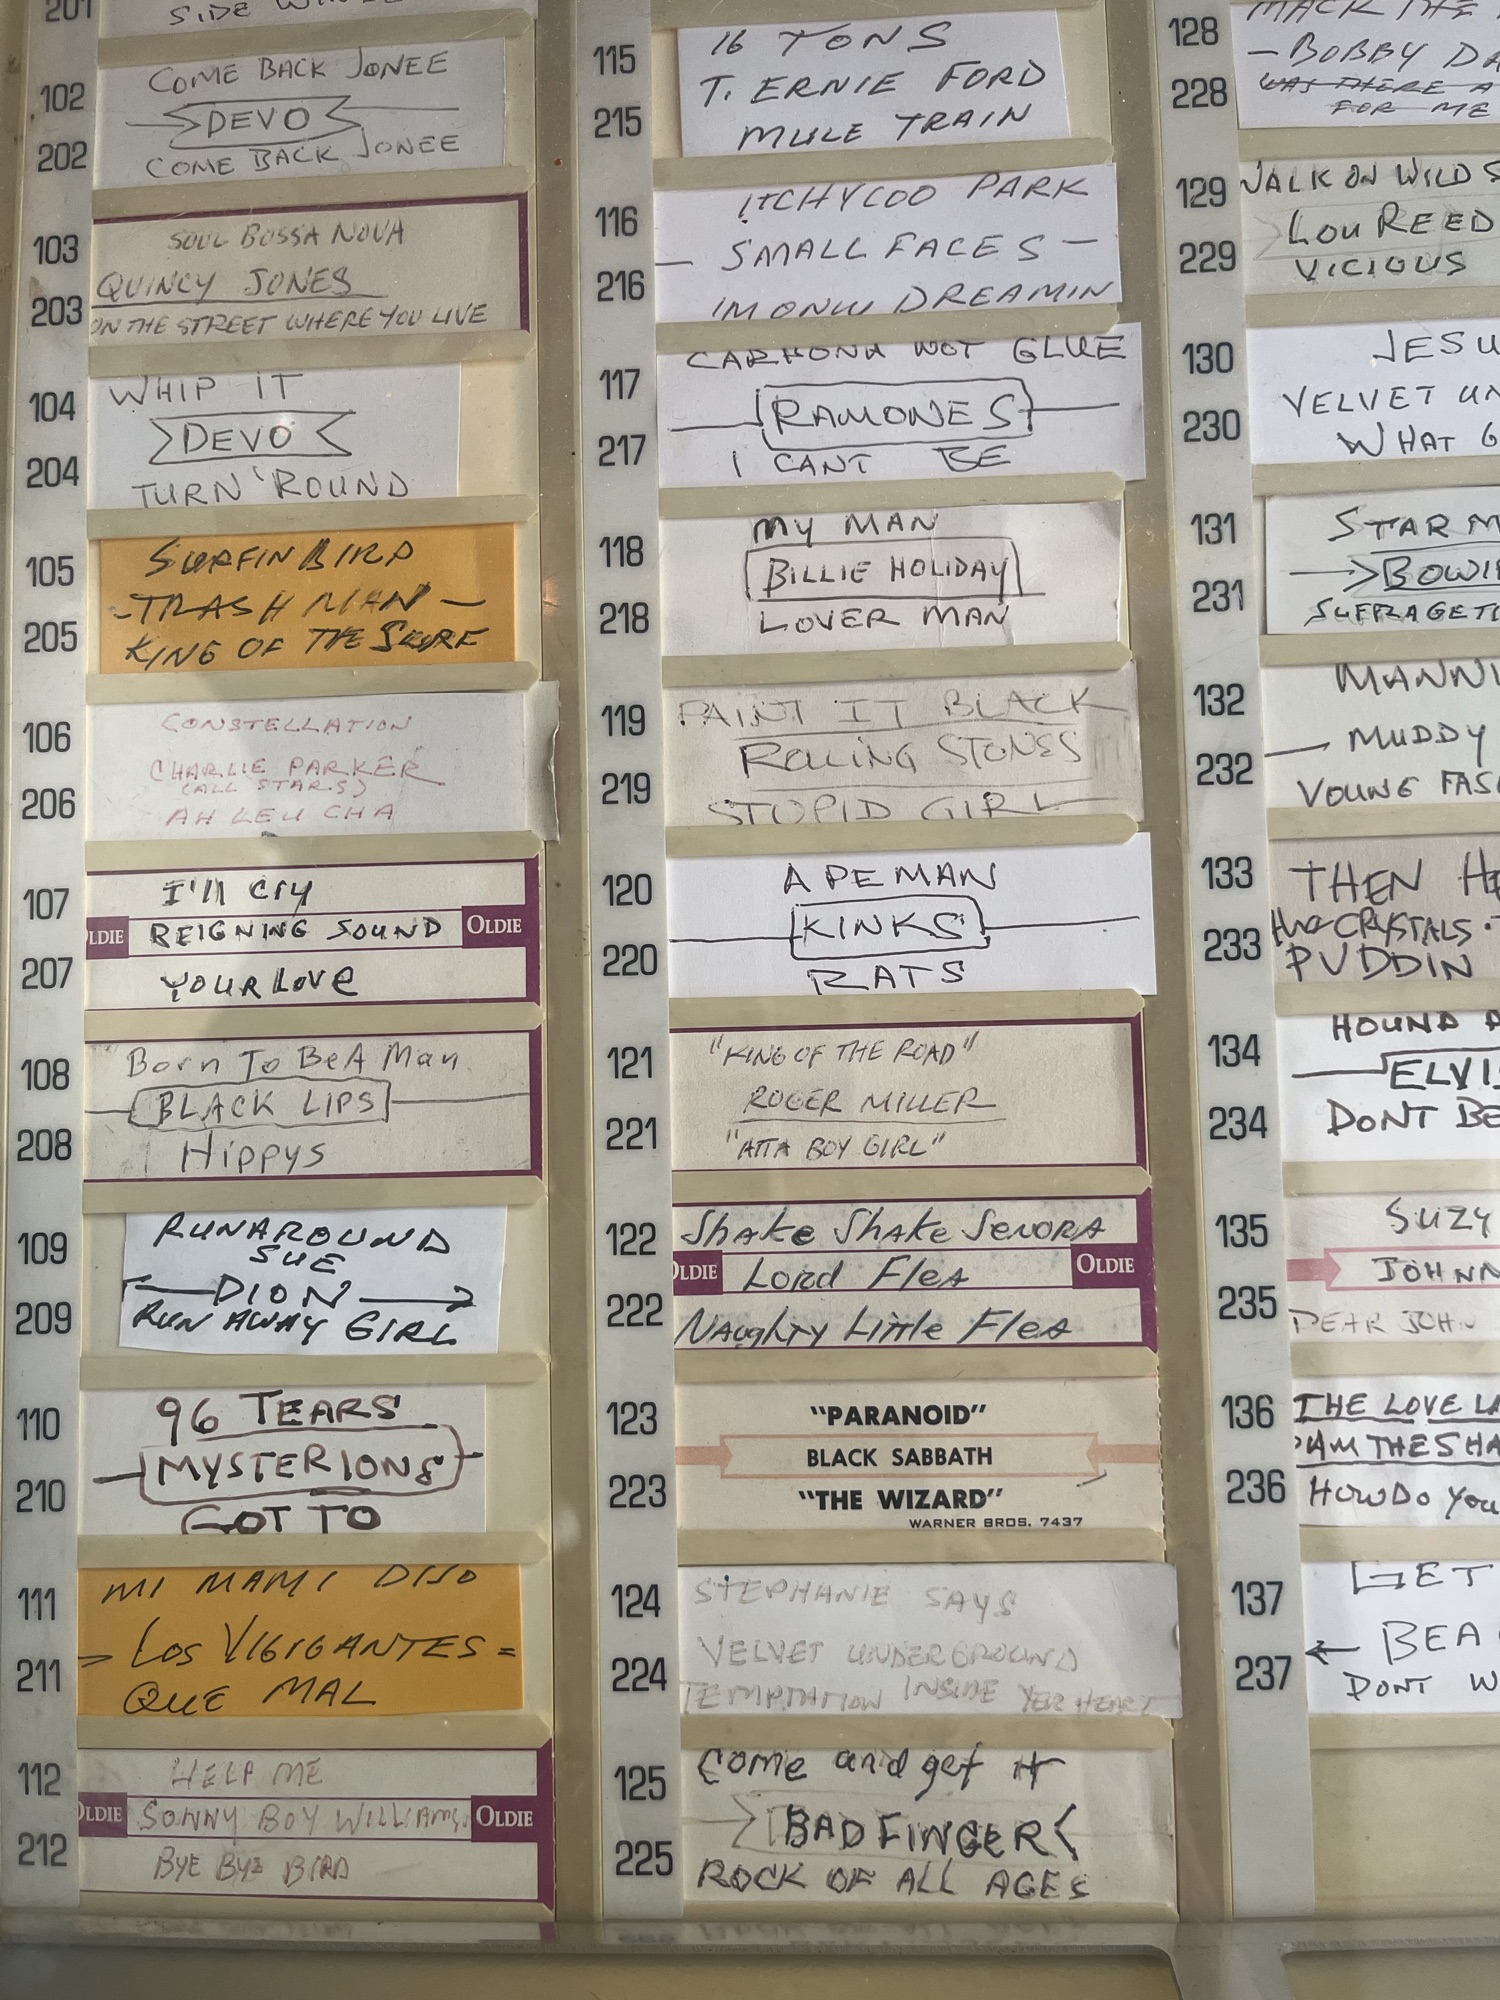 201
SIDE
102
202
COME BACK JONEE
DEVO
COME BACK JONEE
103
203
SOUL BOSSA NOVA
QUINCY JONES
ON THE STREET WHERE YOU LIVE
104
204
WHIP IT
DEVO
TURN 'ROUND
105
205
SURFIN BIRD
-TRASH MAN-
KING OF THE SURF
106
206
CONSTELLATION
CHARLIE PARKER
(ALL STARS)
AH LEU CHA
107
207
I'll cry
OLDIE REIGNING SOUND OLDIE
YOUR LOVE
108
208
Born To Be A Man
BLACK LIPS
Hippys
109
209
RUNAROUND
SUE
DION
RUN AWAY GIRL
110
210
96 TEARS
MYSTERIONS
GOT TO
111
211
MI MAMI DIJO
LOS VIGIGANTES =
QUE MAL
112
212
HELP ME
OLDIE SONNY BOY WILLIAMS OLDIE
BYE BYE BIRD
115
215
16 TONS
T. ERNIE FORD
MULE TRAIN
116
216
ITCHYCOO PARK
SMALL FACES -
IM ONLY DREAMIN
117
217
CARBONA NOT GLUE
RAMONES
I CANT BE
118
218
MY MAN
BILLIE HOLIDAY
LOVER MAN
119
219
PAINT IT BLACK
ROLLING STONES
STUPID GIRL
120
220
APEMAN
KINKS
RATS
121
221
"KING OF THE ROAD"
ROGER MILLER
"ATTA BOY GIRL"
122
222
Shake Shake Senora
OLDIE Lord Flea OLDIE
Naughty Little Flea
123
223
"PARANOID"
BLACK SABBATH
"THE WIZARD"
WARNER BROS. 7437
124
224
STEPHANIE SAYS
VELVET UNDERGROUND
TEMPTATION INSIDE YER HEART
125
225
Come and get it
BADFINGER
ROCK OF ALL AGES
128
228
MACK THE
- BOBBY DA
WAS THERE A
FOR ME
129
229
WALK ON WILD S
LOU REED
VICIOUS
130
230
JESU
VELVET UN
WHAT G
131
231
STAR M
BOWI
SUFFRAGETT
132
232
MANNI
MUDDY
YOUNG FAS
133
233
THEN HE
CRYSTALS
PUDDIN
134
234
HOUND
ELVIS
DONT BE
135
235
SUZY
JOHNN
DEAR JOHN
136
236
THE LOVE LA
THE SHA
HOW DO YOU
137
237
GET
BEA
DONT W